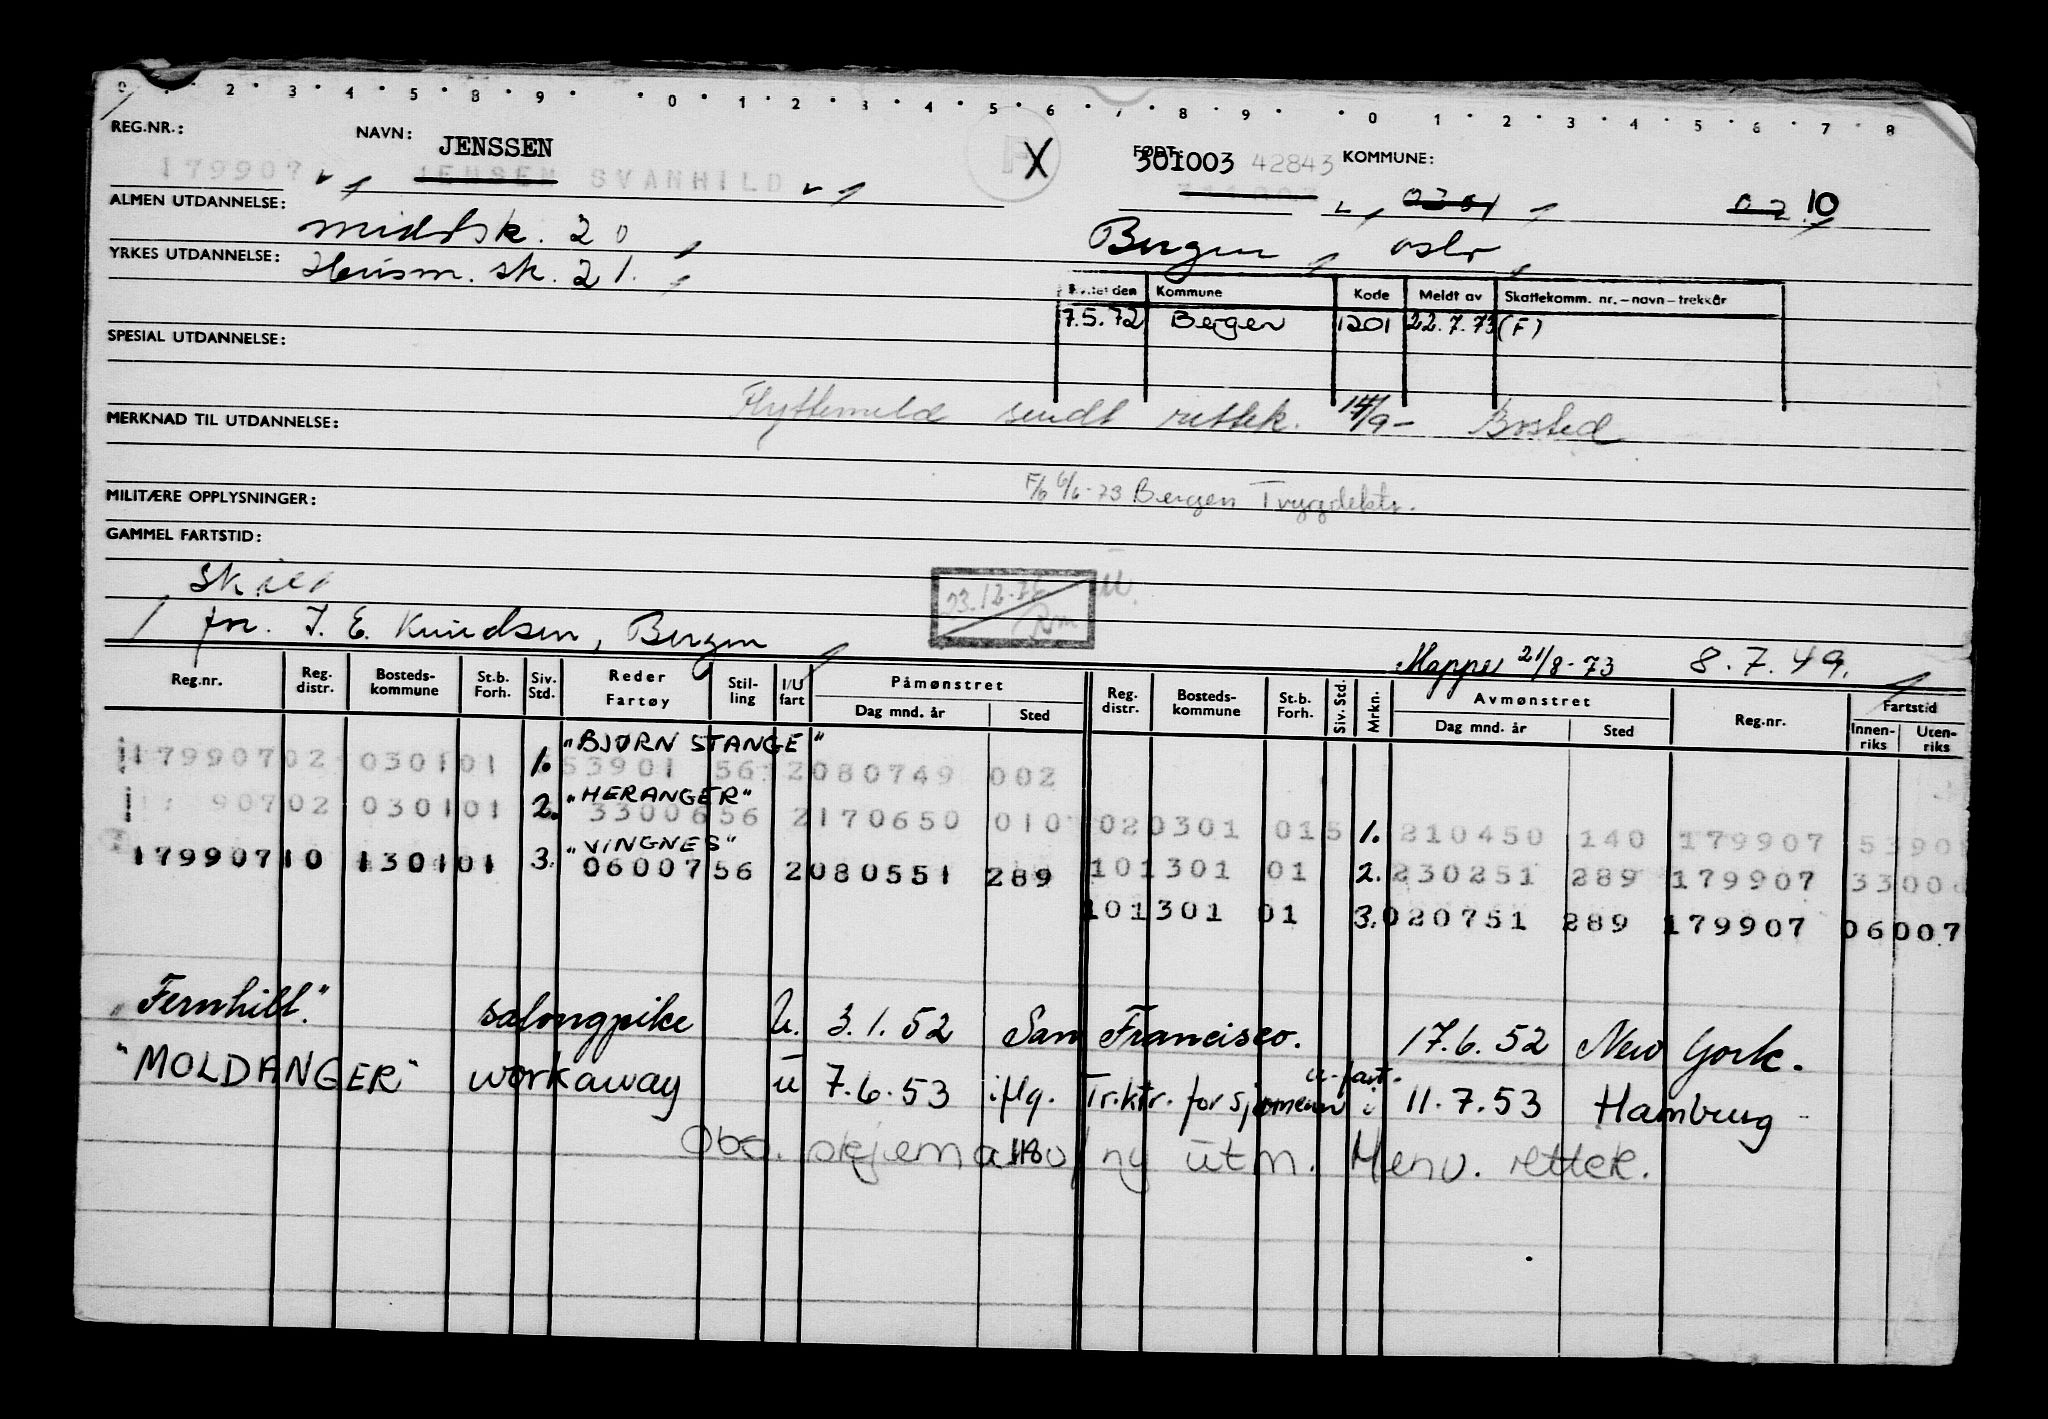 0 · · 2 · 3 · 4 · 5 · 8 · 9 · · 0 · 1 · 2 · 3 · 4 · 5 · 6 · 7 · 8 · 9 · · 0 · 1 · 2 · 3 · 4 · 5 · 6 · 7 · 8
REG.NR.: NAVN: JENSSEN X FØDT: 301003 42843 KOMMUNE:
179907 JENSEN SVANHILD 0301 02 10
ALMEN UTDANNELSE: middsk. 20 Bergen, oslo
YRKES UTDANNELSE: Husm. sk. 21.
Kommune Kode Meldt av Skattekomm. nr.–navn–trekkår
7.5.72 Bergen 1201 22.7.73 (F)
SPESIAL UTDANNELSE:
Flyttemeld sendt rettek. 14/9- Bosted
MERKNAD TIL UTDANNELSE:
6/6-73 Bergen Trygdektr.
MILITÆRE OPPLYSNINGER:
GAMMEL FARTSTID:
23.12.76 U.
fra. J. E. Knudsen, Bergen
Mappe 21/8-73 8.7.49.
Reg.nr. Reg. distr. Bosteds-kommune St.b. Forh. Siv. Std. Reder Fartøy Stil-ling I/U fart Påmønstret Dag mnd. år Sted Reg. distr. Bosteds-kommune St.b. Forh. Siv. Std. Mrkn. Avmønstret Dag mnd. år Sted Reg.nr. Fartstid Innen-riks Uten-riks
"BJØRN STANGE"
179907 02 0301 01 1. 53901 56 2 080749 002
"HERANGER"
907 02 0301 01 2. 33006 56 2 170650 010 02 0301 01 5 1. 210450 140 179907 5390
"VINGNES"
179907 10 1301 01 3. 06007 56 2 080551 289 10 1301 01 2. 230251 289 179907 3300
10 1301 01 3. 020751 289 179907 06007
"Fernhill." salongpike U. 3.1.52 San Francisco. 17.6.52 New York.
"MOLDANGER" workaway U 7.6.53 iflg. Tr.ktr. for sjømenn i u-fart. 11.7.53 Hamburg -
Obs. skjema 1180/ ny utm. Henv. rettek.